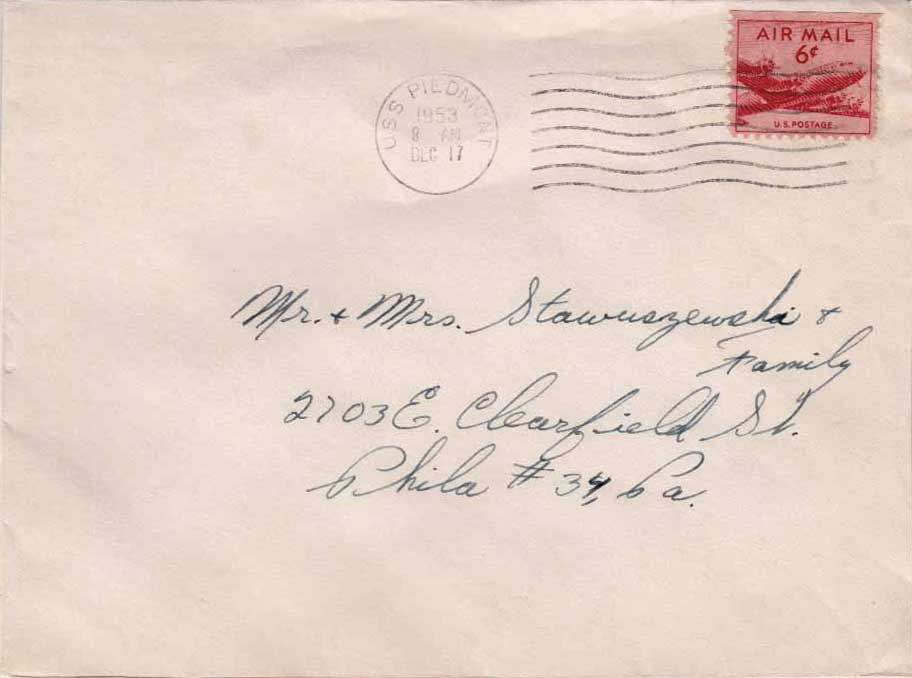 AIR MAIL
6¢
U.S. POSTAGE
USS PIEDMONT
1953
8 AM
DEC 17
Mr. + Mrs. Stawuszewski +
Family
2703 E. Clearfield St.
Phila #34, Pa.